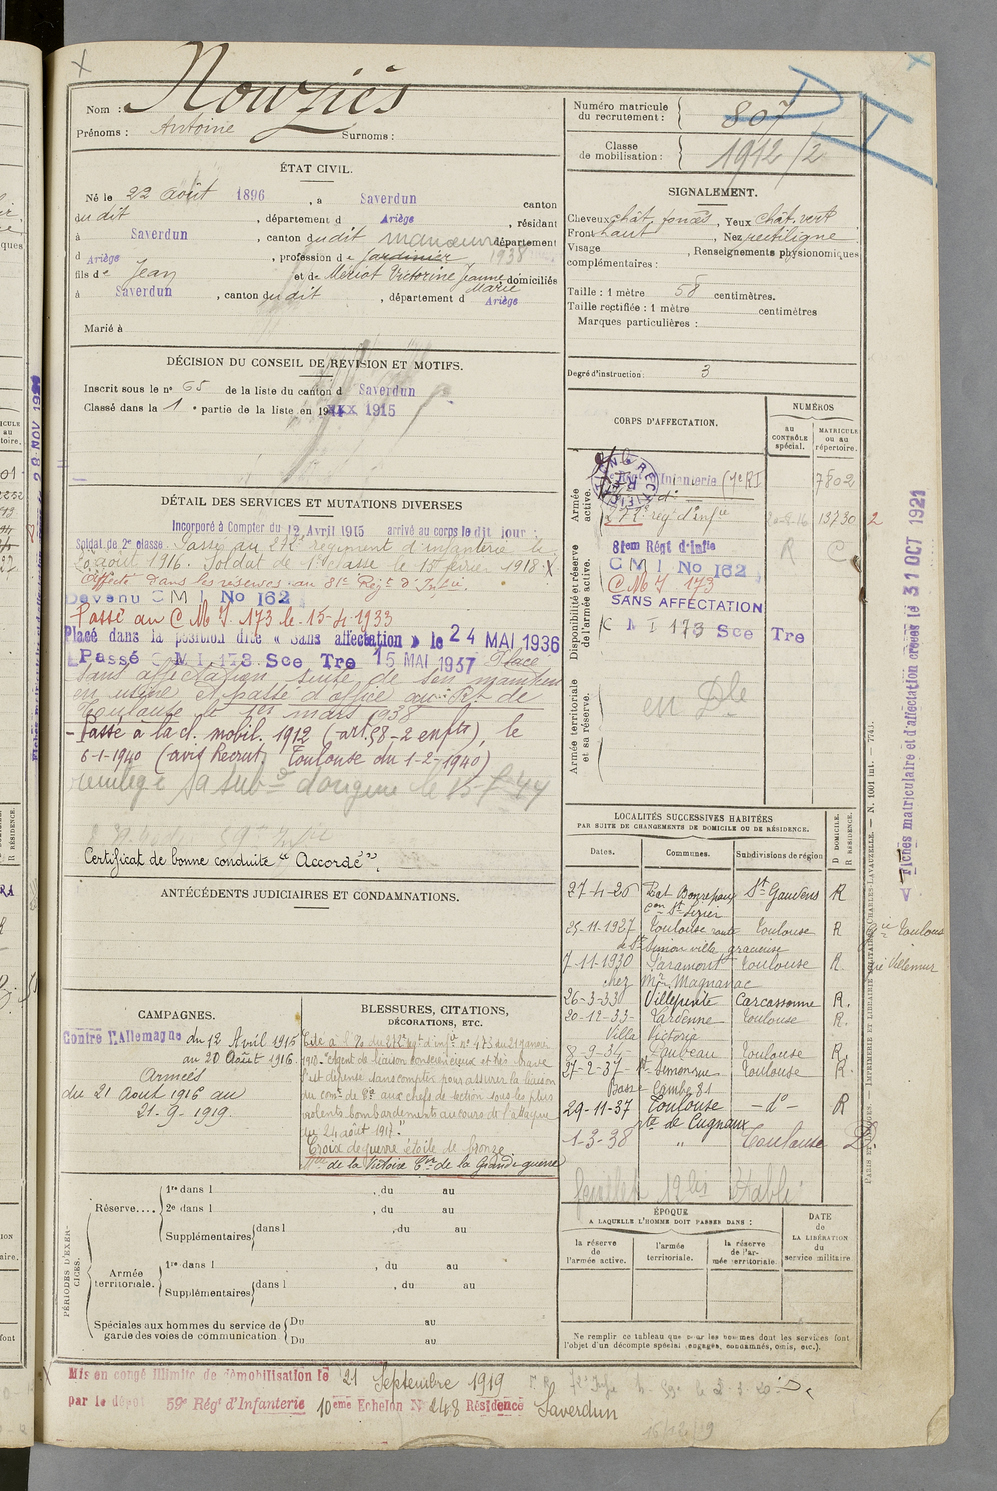 Nom : Nouziès
Prénoms : Antoine Surnoms :
ÉTAT CIVIL.
Né le 22 Août 1896, à Saverdun canton
du dit, département d Ariège, résidant
à Saverdun, canton du dit manœuvre département
d Ariège, profession de Jardinier 1938
fils de Jean et de Meriot Victorine Jeanne Marie domiciliés
à Saverdun, canton du dit, département d Ariège
Marié à
DÉCISION DU CONSEIL DE RÉVISION ET MOTIFS.
Inscrit sous le n° 65 de la liste du canton d Saverdun
Classé dans la 1e partie de la liste en 19 1915
DÉTAIL DES SERVICES ET MUTATIONS DIVERSES
Incorporé à Compter du 12 Avril 1915 arrivé au corps le dit jour
Soldat de 2e classe. Passé au 272e régiment d'infanterie le
20 août 1916. Soldat de 1re classe le 15 février 1918.
Affecté dans les réserves au 81e Régt d'Infie.
Devenu C M I No 162
Passé au C M I 173 le 15-4-1933
Placé dans la position dite « Sans affectation » le 24 MAI 1936
Passé C M I 173 Sce Tre 15 MAI 1937 Placé
sans affectation suite de son maintien
en usine et passé d'office au Rt de
Toulouse le 1er mars 1938
- Passé à la cl. mobil. 1912 (art 58-2 enfts), le
6-1-1940 (avis Recrut. Toulouse du 1-2-1940)
sa subon d'origine le
Certificat de bonne conduite "Accordé".
ANTÉCÉDENTS JUDICIAIRES ET CONDAMNATIONS.
CAMPAGNES.
Contre l'Allemagne du 12 Avril 1915
au 20 Août 1916.
Armées
du 21 Août 1916 au
21-9-1919.
BLESSURES, CITATIONS,
DÉCORATIONS, ETC.
Cité à l'O. du 272e Rgt d'Infie n° 473 du 21 janvier
1918. "Agent de liaison consciencieux et très brave
s'est dépensé sans compter pour assurer la liaison
du comt de Cie aux chefs de section sous les plus
violents bombardements au cours de l'attaque
du 24 août 1917."
Croix de guerre étoile de bronze
Mlle de la Victoire Cve de la Grande guerre
PÉRIODES D'EXERCICES.
Réserve....
1re dans l , du au
2e dans l , du au
Supplémentaires dans l , du au
Armée territoriale.
1re dans l , du au
Supplémentaires dans l , du au
Spéciales aux hommes du service de garde des voies de communication
Du au
Du au
Mis en congé illimité de démobilisation le 21 Septembre 1919
par le dépôt 59e Régt d'Infanterie 10eme Echelon N° 248 Résidence Saverdun
Numéro matricule du recrutement : 807
Classe de mobilisation : 1912/2
D I
SIGNALEMENT.
Cheveux chât. foncés, Yeux chât. vert
Front haut, Nez rectiligne
Visage , Renseignements physionomiques
complémentaires :
Taille : 1 mètre 58 centimètres.
Taille rectifiée : 1 mètre centimètres
Marques particulières :
Degré d'instruction : 3
CORPS D'AFFECTATION.
NUMÉROS
au CONTRÔLE spécial.
MATRICULE ou au répertoire.
Armée active.
Infanterie 7802
272e régt d'infie 13730
Disponibilité et réserve de l'armée active.
81em Régt d'Infie R C
C M I No 162
C M I 173
SANS AFFECTATION
C M I 173 Sce Tre
Armée territoriale et sa réserve.
en Dle
LOCALITÉS SUCCESSIVES HABITÉES
PAR SUITE DE CHANGEMENTS DE DOMICILE OU DE RÉSIDENCE.
Dates. Communes. Subdivisions de région D DOMICILE. R RÉSIDENCE.
27-4-26 Prat Bonrepaux con St Lizier St Gaudens R
25-11-1927 Toulouse route de St Simon villa gracieuse Toulouse R
7-11-1930 Toulouse R
chez Mr Magnanac
26-3-33 Villepinte Carcassonne R.
20-12-33 Lardenne Toulouse R.
Villa Victoria
8-9-34 Toulouse R.
27-2-37 St Simon rue Basse Cambe 81 Toulouse R.
29-11-37 Toulouse rte de Cugnaux -d°- R
1-3-38 " Toulouse D
ÉPOQUE
A LAQUELLE L'HOMME DOIT PASSER DANS :
la réserve de l'armée active.
l'armée territoriale.
la réserve de l'armée territoriale.
DATE de LA LIBÉRATION du service militaire
Ne remplir ce tableau que pour les hommes dont les services font
l'objet d'un décompte spécial (engagés, condamnés, omis, etc.).
Fiches matriculaire et d'affectation créées le 31 OCT 1921
PARIS ET LIMOGES. — IMPRIMERIE ET LIBRAIRIE MILITAIRE CHARLES-LAVAUZELLE. — N. 1001 int. — 7741.
28 NOV 1921